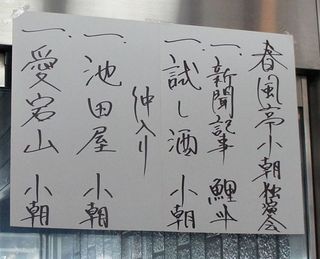 春風亭小朝独演会
一、新聞記事 鯉斗
一、試し酒 小朝
仲入り
一、池田屋 小朝
一、愛宕山 小朝